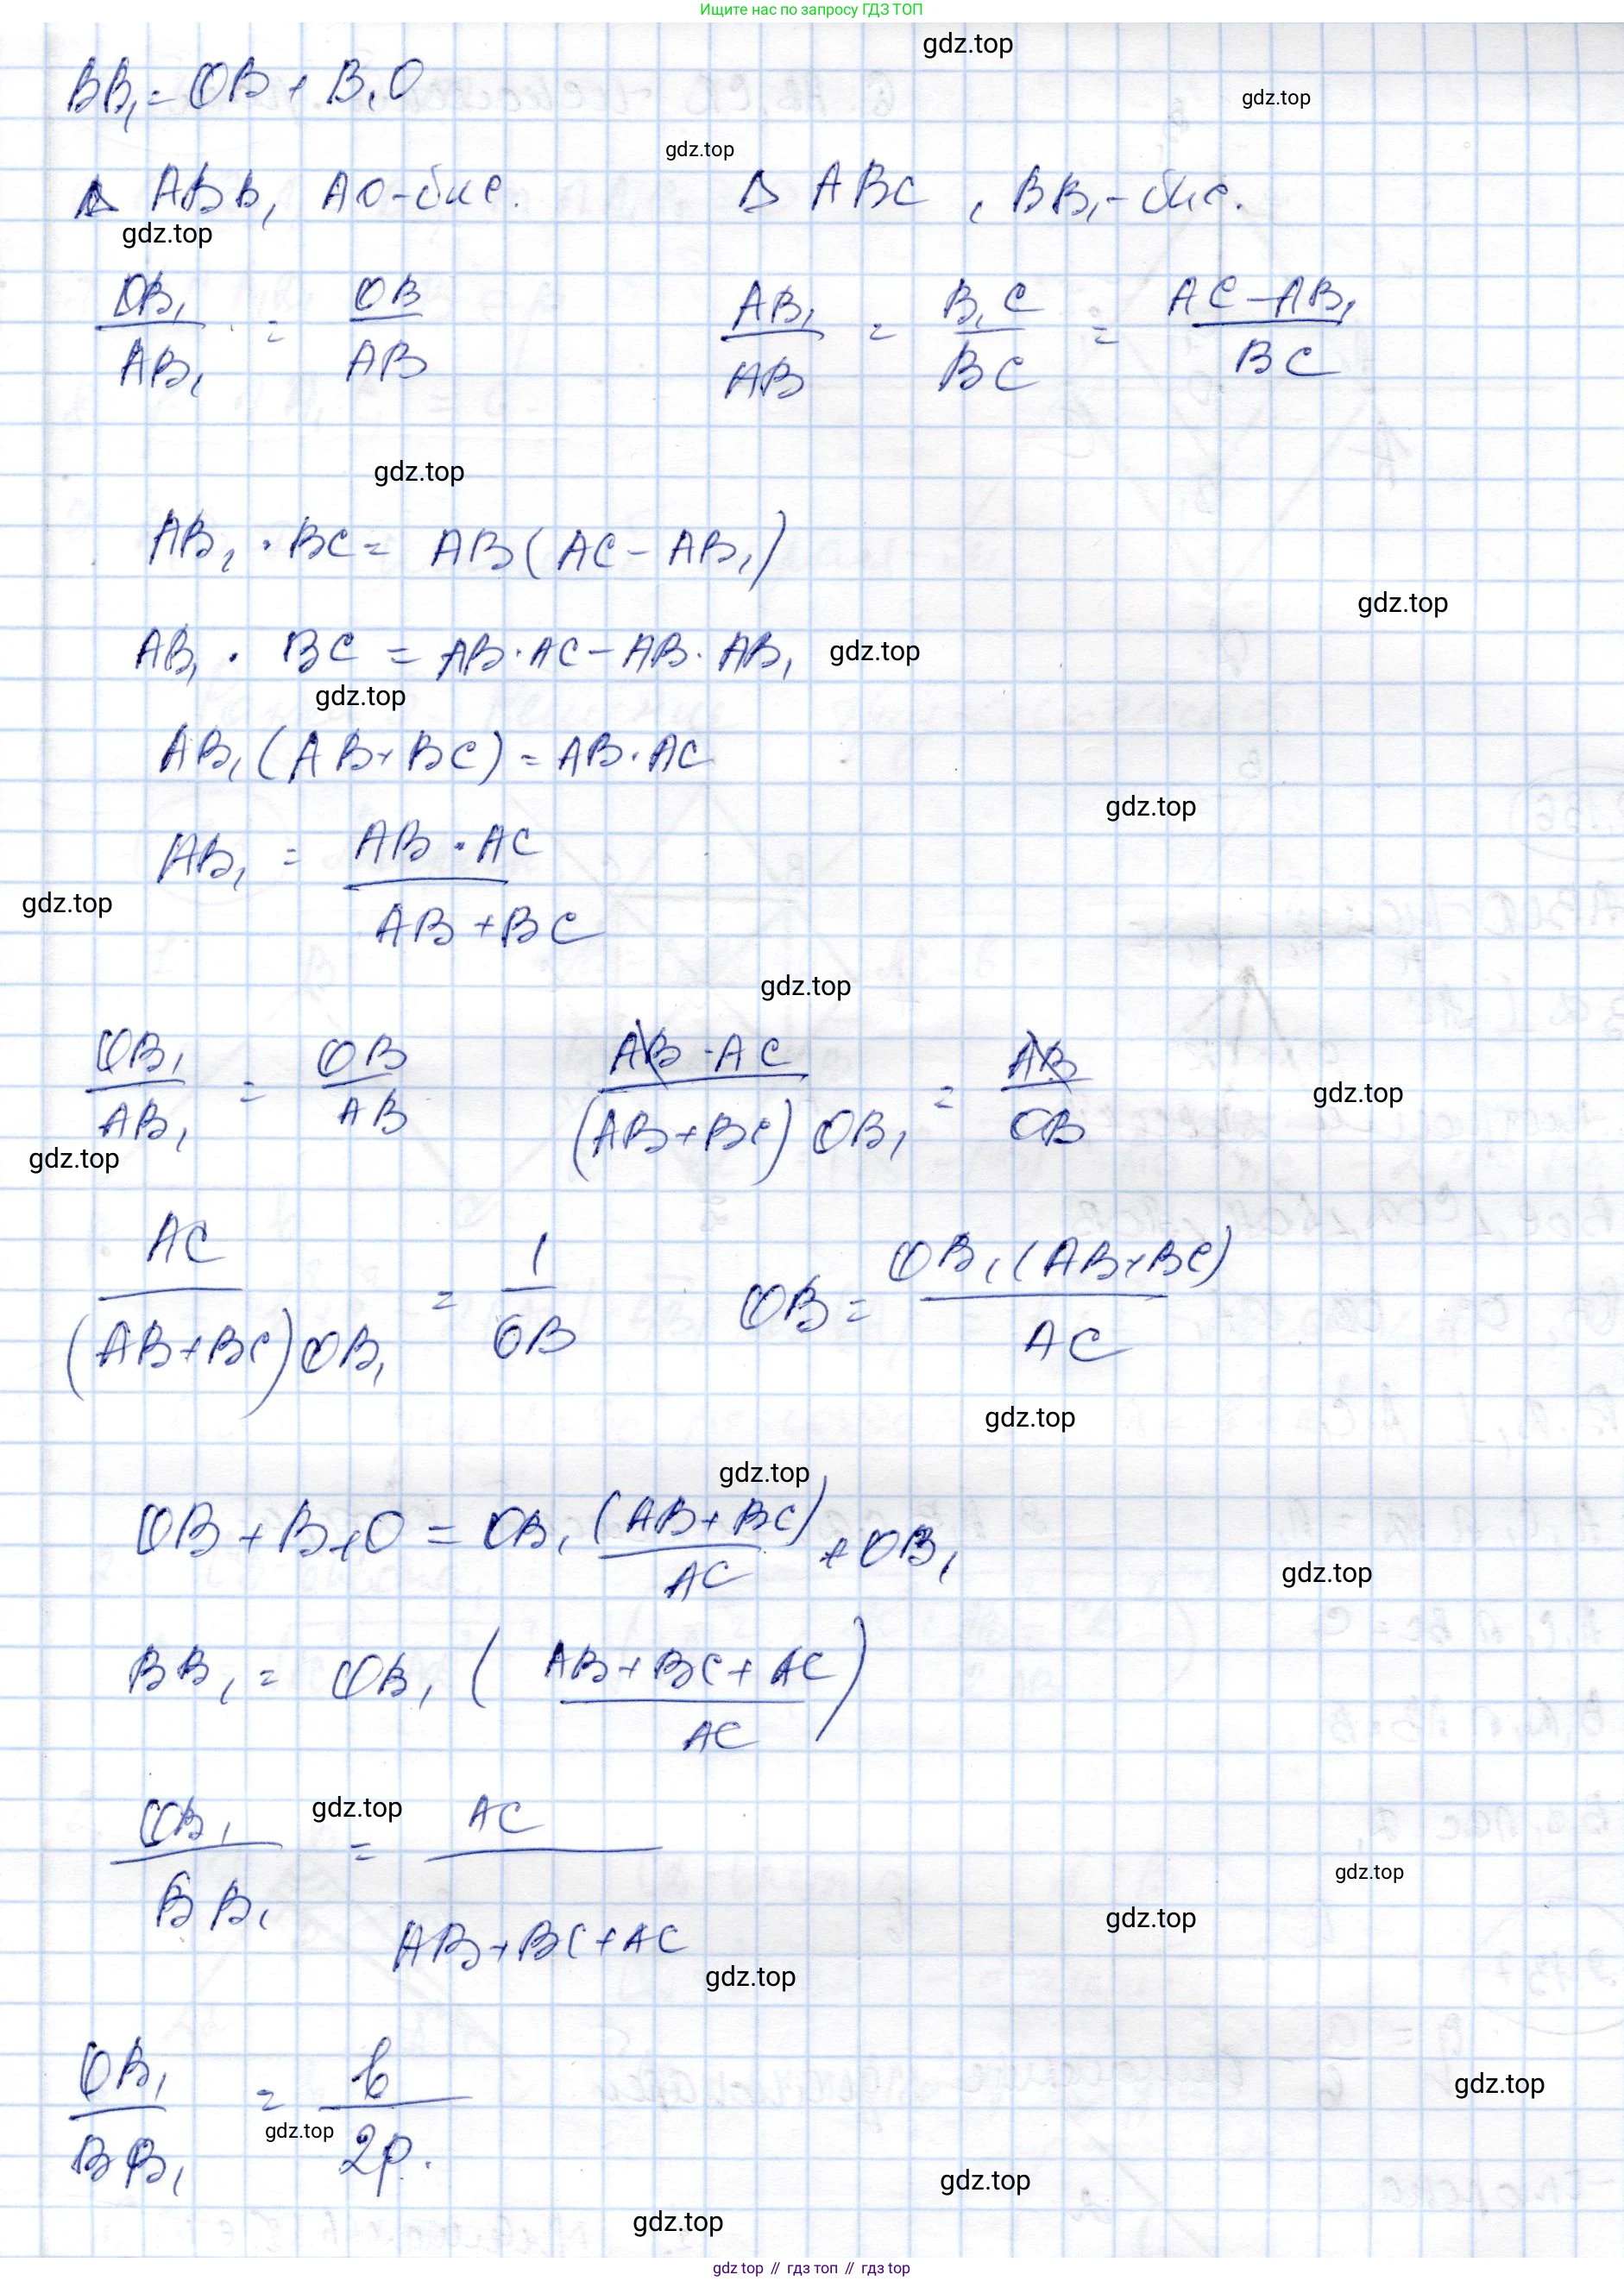 Ищите нас по запросу ГДЗ ТОП
gdz.top
BB₁ = OB + B₁O
gdz.top
gdz.top
Δ ABB₁ AO - бис. Δ ABC, BB₁ - бис.
gdz.top
OB₁/AB₁ = OB/AB AB₁/AB = B₁C/BC = AC - AB₁/BC
gdz.top
AB₁ · BC = AB(AC - AB₁)
gdz.top
AB₁ · BC = AB · AC - AB · AB₁
gdz.top
gdz.top
AB₁(AB + BC) = AB · AC
gdz.top
AB₁ = AB · AC/AB + BC
gdz.top
gdz.top
OB₁/AB₁ = OB/AB AB · AC/(AB + BC) OB₁ = AB/OB
gdz.top
gdz.top
AC/(AB + BC) OB₁ = 1/OB OB = OB₁(AB + BC)/AC
gdz.top
gdz.top
OB + B₁O = OB₁ (AB + BC)/AC + OB₁
gdz.top
BB₁ = OB₁ (AB + BC + AC/AC)
gdz.top
OB₁/BB₁ = AC/AB + BC + AC
gdz.top
gdz.top
gdz.top
OB₁/BB₁ = b/2p.
gdz.top
gdz.top
gdz.top
gdz.top
gdz top // гдз топ // gdz top